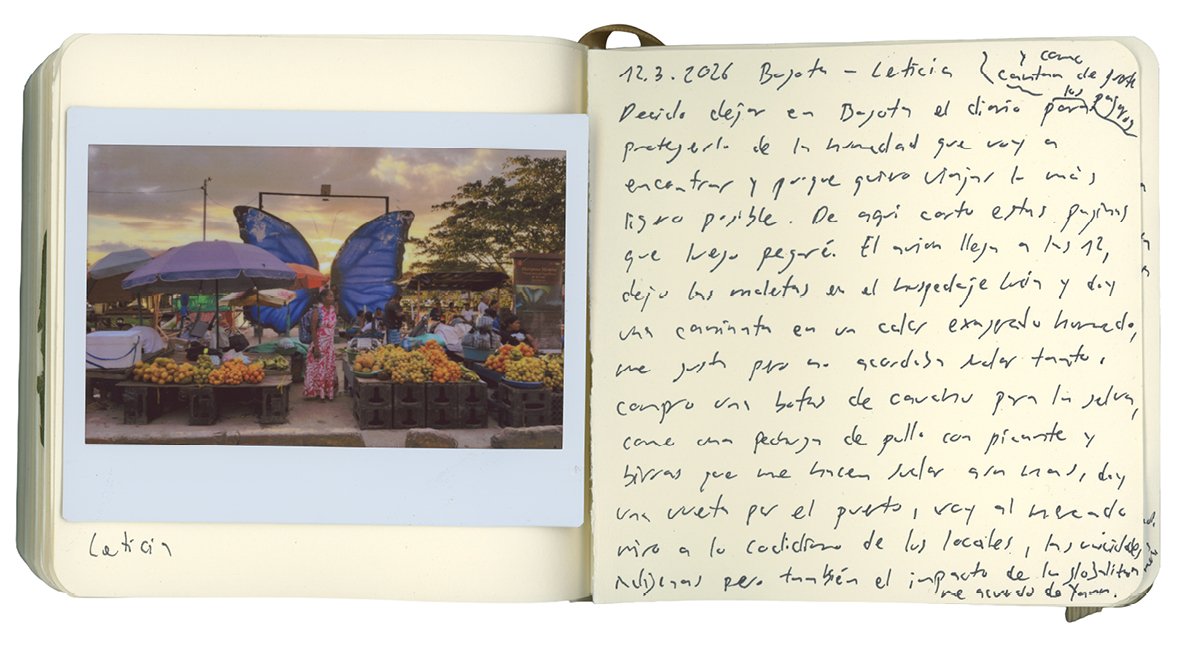 Leticia
12.3.2026 Bogota – Leticia
y como
cantan de
los pajaros
Decido dejar en Bogota el diario para
protegerlo de la humedad que voy a
encontrar y porque quiero viajar lo más
ligero posible. De aqui corto estas paginas
que luego pegaré. El avion llega a las 12,
dejo las maletas en el hospedaje y doy
una caminata en un calor exagerado humedo,
me gusta pero no acordaba sudar tanto.
compro unas botas de caucho para la selva,
como una pechuga de pollo con picante y
birras que me hacen sudar aun mas, doy
una vuelta por el puerto, voy al mercado
miro a lo cotidiano de los locales, las
indigenas pero también el impacto de la
me acuerdo de